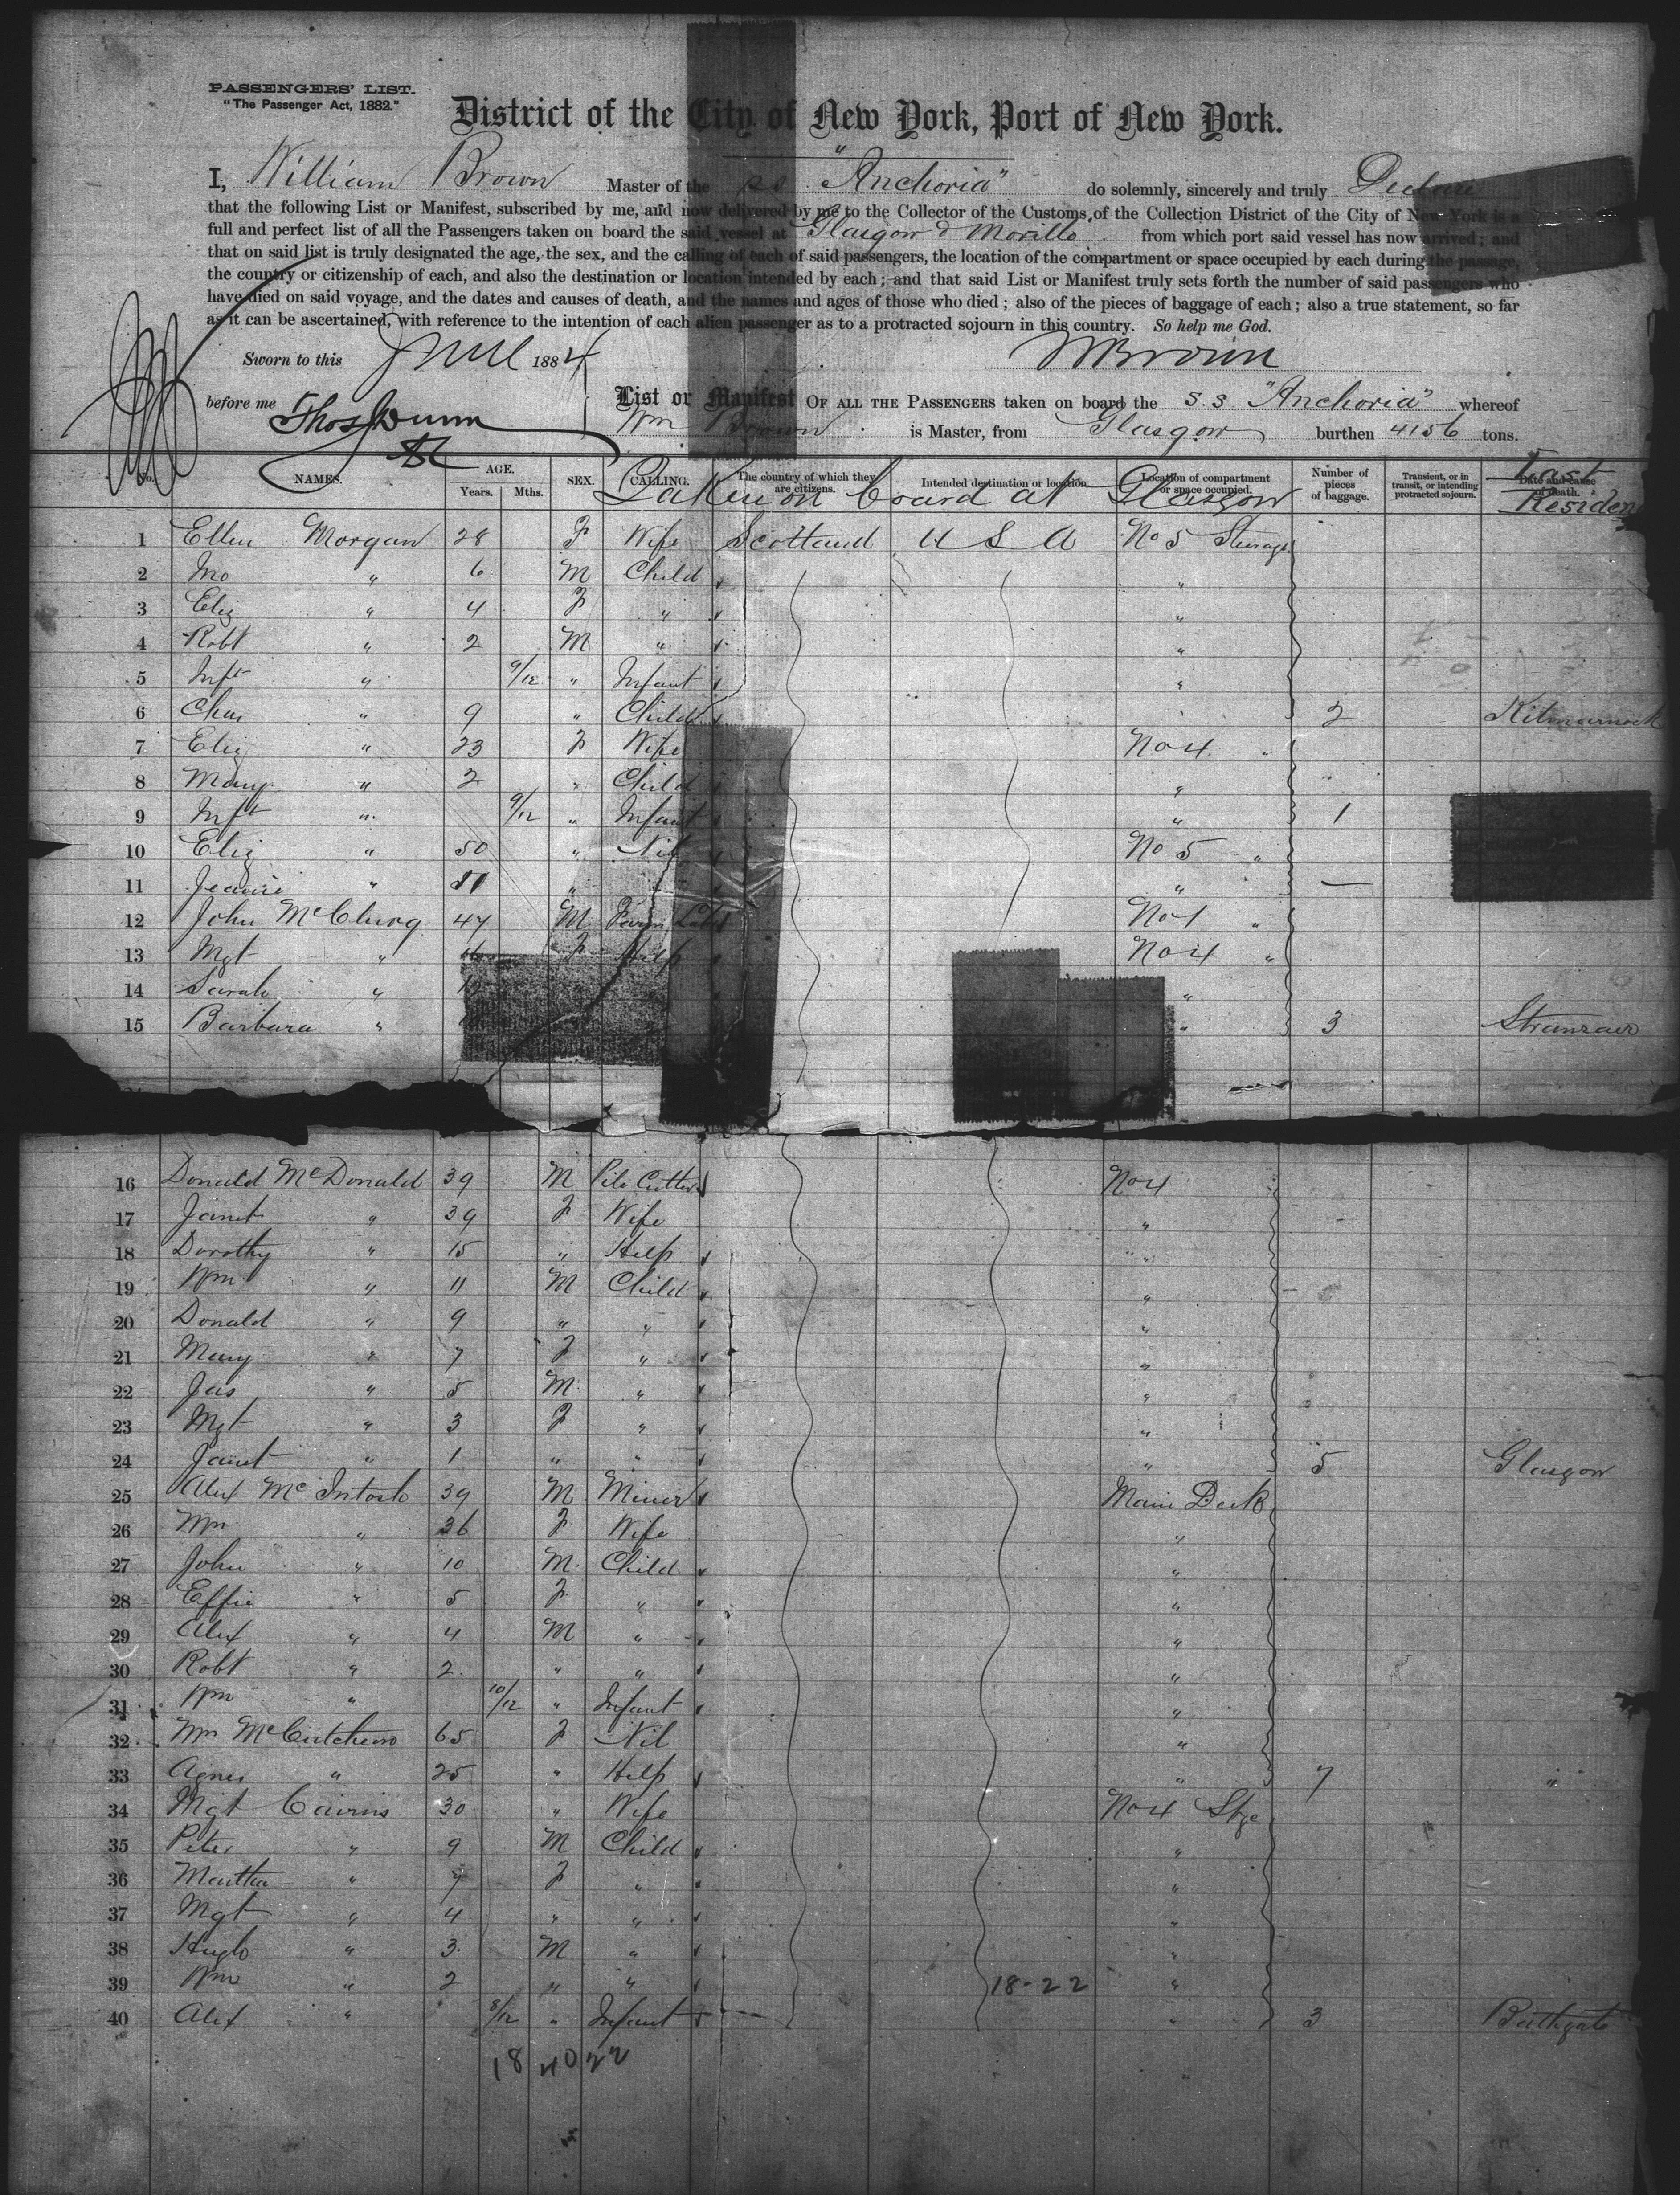 PASSENGERS' LIST.
"The Passenger Act, 1882."
District of the City of New York, Port of New York.
I, William Brown Master of the ss "Anchoria" do solemnly, sincerely and truly Declare
that the following List or Manifest, subscribed by me, and now delivered by me to the Collector of the Customs of the Collection District of the City of New York is a
full and perfect list of all the Passengers taken on board the said vessel at Glasgow & Moville from which port said vessel has now arrived; and
that on said list is truly designated the age, the sex, and the calling of each of said passengers, the location of the compartment or space occupied by each during the passage,
the country or citizenship of each, and also the destination or location intended by each; and that said List or Manifest truly sets forth the number of said passengers who
have died on said voyage, and the dates and causes of death, and the names and ages of those who died; also of the pieces of baggage of each; also a true statement, so far
as it can be ascertained, with reference to the intention of each alien passenger as to a protracted sojourn in this country. So help me God.
Sworn to this June 1884 WBrown
before me Thos Dunn List or Manifest OF ALL THE PASSENGERS taken on board the S.S "Anchoria" whereof
Wm Brown is Master, from Glasgow burthen 4156 tons.
No. NAMES. AGE. Years. Mths. SEX. CALLING. The country of which they are citizens. Intended destination or location. Location of compartment or space occupied. Number of pieces of baggage. Transient, or in transit, or intending protracted sojourn. Date and cause of death. Last Residen
Taken on board at Glasgow
1 Ellen Morgan 28 F Wife Scotland U S A No 5 Steerage
2 Jno " 6 M Child "
3 Eliz " 4 F " "
4 Robt " 2 M " "
5 Inft " 9/12 " Infant "
6 Chas " 9 " Child 2 Kilmarnock
7 Eliz " 23 F Wife No 4 "
8 Mary " 2 " Child "
9 Inft " 9/12 " Infant " 1
10 Eliz " 50 " Nil No 5 "
11 Jeanie " " " —
12 John McClurg 47 M Farm Lab No 1 "
13 Mgt " F Help No 4 "
14 Sarah " "
15 Barbara " " 3 Stranraer
16 Donald McDonald 39 M File Cutter No 4
17 Janet " 39 F Wife "
18 Dorothy " 15 " Help "
19 Wm " 11 M Child "
20 Donald " 9 " " "
21 Mary " 7 F " "
22 Jas " 5 M " "
23 Mgt " 3 F " "
24 Janet " 1 " " " 5 Glasgow
25 Alex McIntosh 39 M Miner Main Deck
26 Mrs " 36 F Wife "
27 John " 10 M Child "
28 Effie " 5 F " "
29 Alex " 4 M " "
30 Robt " 2 " " "
31 Wm " 10/12 " Infant "
32 Mrs McCutcheon 65 F Nil "
33 Agnes " 25 " Help " 7 "
34 Mgt Cairns 30 " Wife No 4 Stge
35 Peter " 9 M Child "
36 Martha " 7 F " "
37 Mgt " 4 " " "
38 Hugh " 3 M " "
39 Wm " 2 " " 18-22 "
40 Alex " 8/12 " Infant " 3 Bathgate
18 40 22